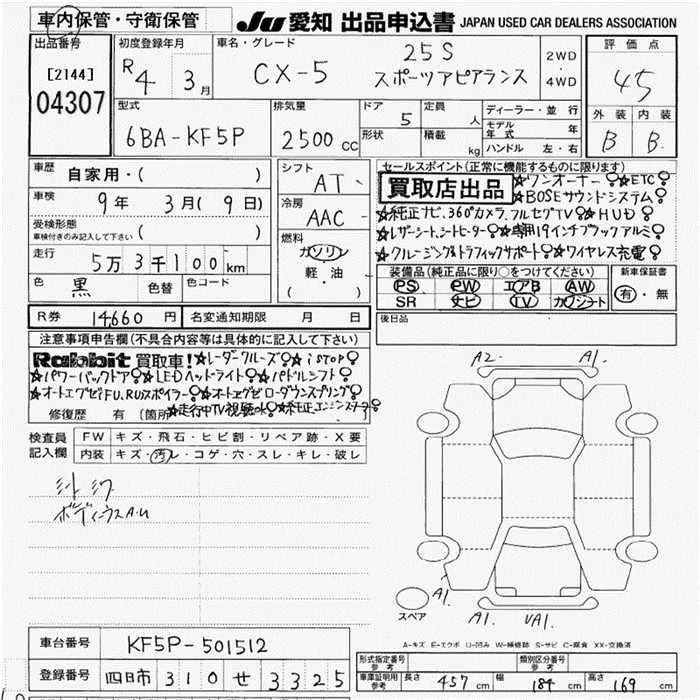 車内保管・守衛保管
JU 愛知 出品申込書 JAPAN USED CAR DEALERS ASSOCIATION
出品番号 初度登録年月 車名・グレード 評価点
[2144] 04307
R4 3月
CX-5 25S
スポーツアピアランス
2WD
4WD
45
型式 排気量 ドア 定員 ディーラー・並行 外装 内装
6BA-KF5P 2500cc 5 人
形状 積載 kg
モデル年式 年
ハンドル 左・右
B B
車歴 自家用・( )
シフト AT
セールスポイント(正常に機能するものに限ります)
買取店出品 ☆ワンオーナー♀☆ETC♀
☆BOSEサウンドシステム♀
☆純正ナビ、360°カメラ、フルセグTV♀☆HUD♀
☆レザーシート、シートヒーター♀☆専用19インチブラックアルミ♀
☆クルージング&トラフィックサポート♀☆ワイヤレス充電♀
車検 9年 3月(9日)
冷房 AAC
受検形態
車検付きのみ記入して下さい ( )
燃料 ガソリン
軽・油
( )
走行 5万3千100km
色 黒 色替 色コード
装備品(純正品に限り○をつけてください) 新車保証書
PS PW エアB AW 有・無
SR ナビ TV カワシート
R券 14,660円 名変通知期限 月 日
後日品
注意事項申告欄(不具合内容等は具体的に記入して下さい)
Rabbit 買取車!☆レーダークルーズ♀☆iSTOP♀
☆パワーバックドア♀☆LEDヘッドライト♀☆パドルシフト♀
☆オートエグゼFU.RUスポイラー♀☆オートエグゼローダウンスプリング♀
修復歴 有(箇所 ☆走行中TV視聴OK♀☆純正エンジンスターター♀
検査員記入欄 FW キズ・飛石・ヒビ割・リペア跡・X要
内装 キズ・汚レ・コゲ・穴・スレ・キレ・破レ
A2 A1.
A1. A1. UA1. A1.
スペア
A-キズ E-エクボ U-凹み W-補修跡 S-サビ C-腐食 XX-交換済
車台番号 KF5P-501512
登録番号 四日市 310 せ 3325
形式指定番号 参考 類別区分番号 参考
車庫証明用 参考 長さ 457cm 幅 184cm 高さ 169cm